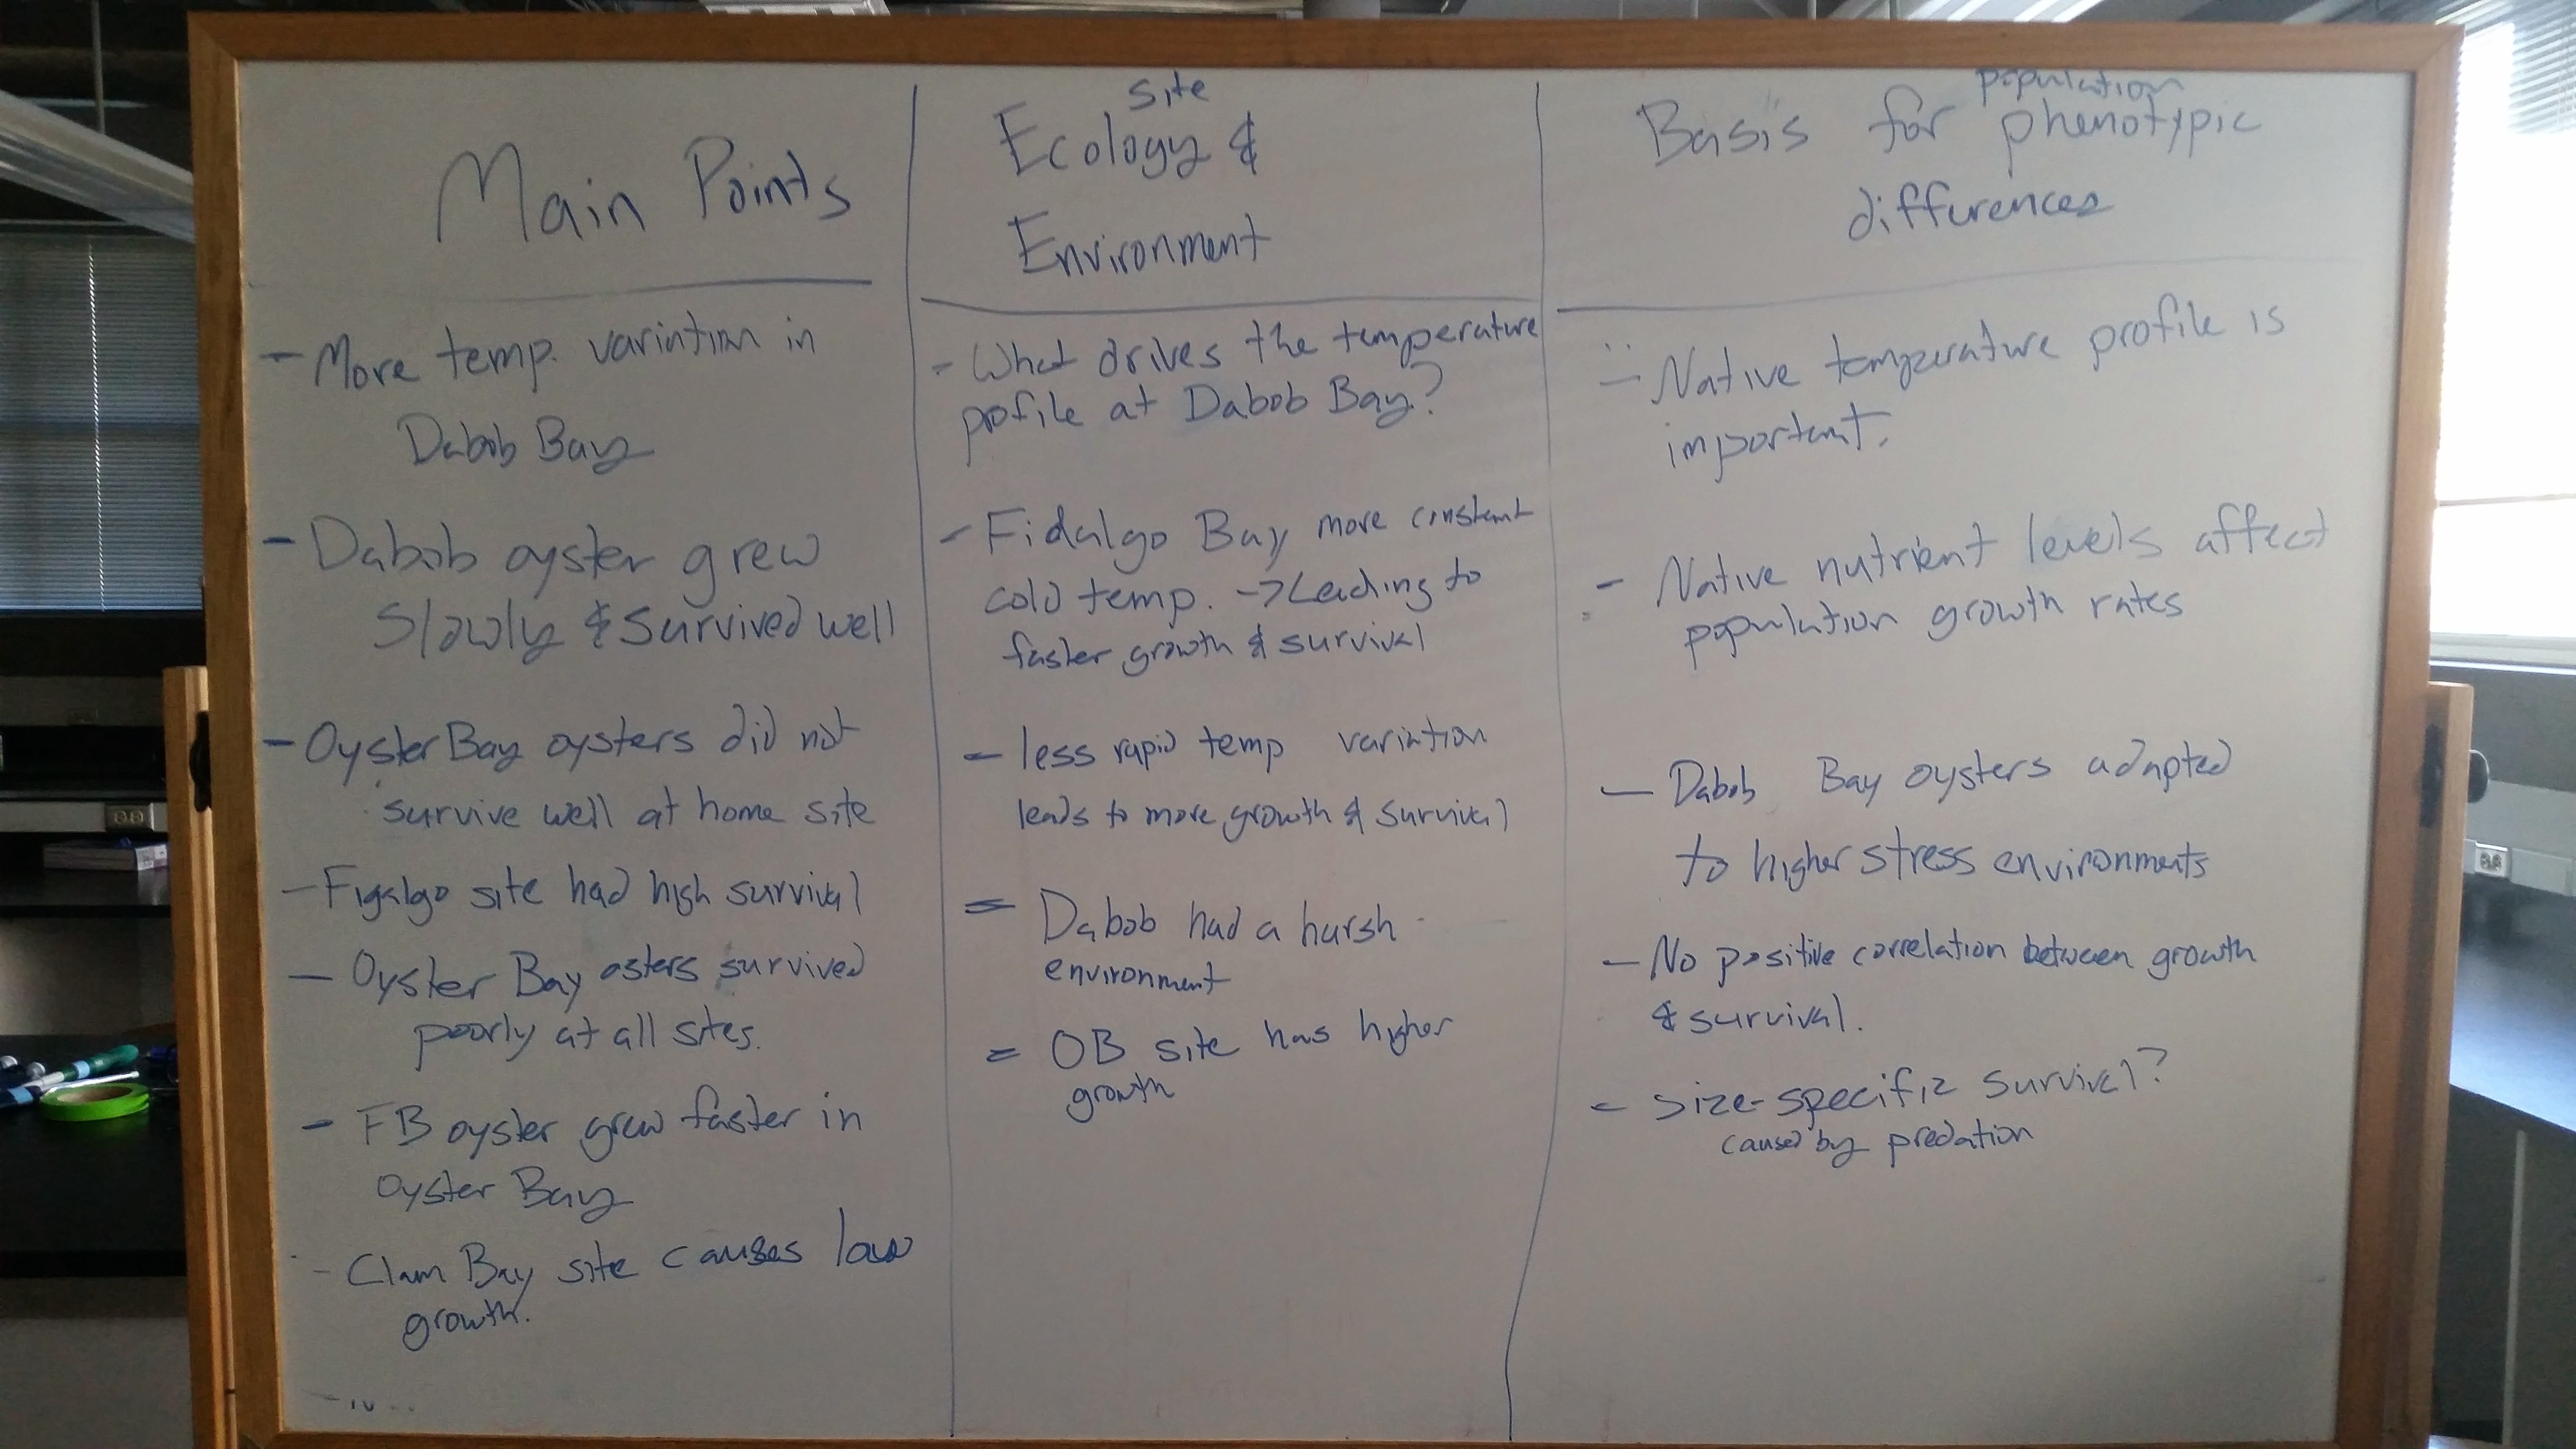 Main Points
- More temp. variation in
Dabob Bay
- Dabob oyster grew
slowly & survived well
- Oyster Bay oysters did not
survive well at home site
- Figalgo site had high survival
- Oyster Bay osters survived
poorly at all sites.
- FB oyster grew faster in
Oyster Bay
- Clam Bay site causes low
growth.
site
Ecology &
Environment
- What drives the temperature
profile at Dabob Bay?
- Fidalgo Bay more constant
cold temp. -> Leading to
faster growth & survival
- less rapid temp variation
leads to more growth & survival
= Dabob had a harsh
environment
= OB site has higher
growth
population
Basis for phenotypic
differences
- Native temperature profile is
important.
- Native nutrient levels affect
population growth rates
- Dabob Bay oysters adapted
to higher stress environments
- No positive correlation between growth
& survival.
- size-specific survival?
caused by predation